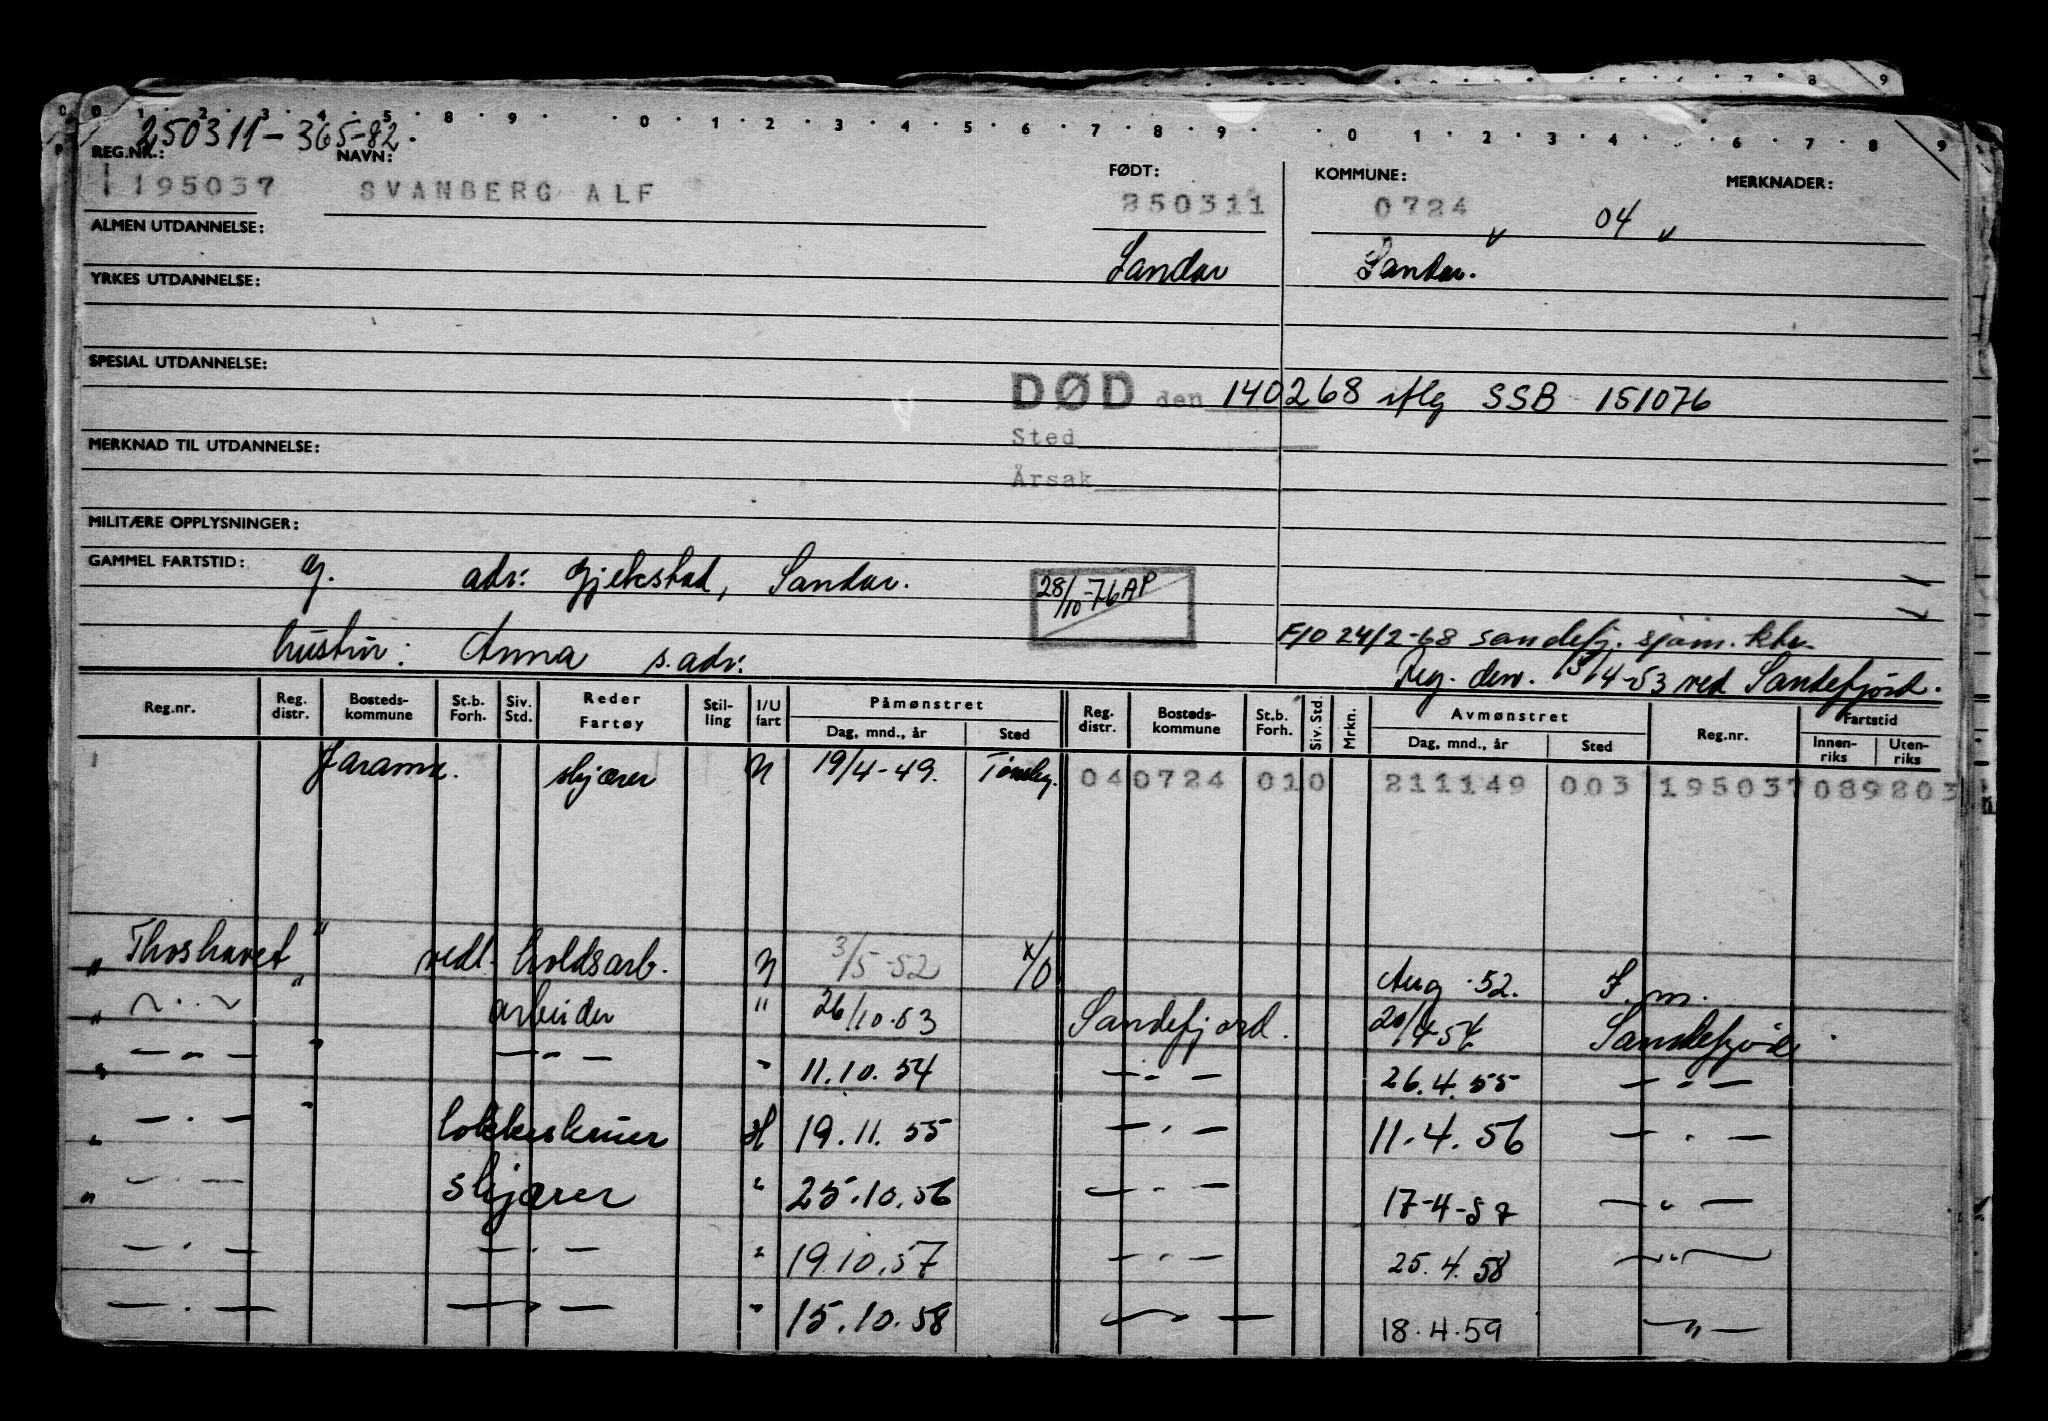 0 1 2 3 4 5 8 9 0 1 2 3 4 5 6 7 8 9 0 1 2 3 4 6 7 8 9
250311-365-82.
REG.NR.: NAVN: FØDT: KOMMUNE: MERKNADER:
195037 SVANBERG ALF 250311 0724 04
ALMEN UTDANNELSE: Sandar Sandar.
YRKES UTDANNELSE:
SPESIAL UTDANNELSE:
DØD den 140268 iflg SSB 151076
Sted
MERKNAD TIL UTDANNELSE:
Årsak
MILITÆRE OPPLYSNINGER:
GAMMEL FARTSTID: g. adr: Gjekstad, Sandar. 28/10-76 AP
hustru: Anna s. adr: F10 24/2-68 sandefj. sjøm.ktr.
Reg. den. 15/4-53 ved Sandefjord.
Reg.nr. Reg. distr. Bosteds-kommune St.b. Forh. Siv. Std. Reder Fartøy Stil-ling I/U fart Påmønstret Dag, mnd., år Sted Reg. distr. Bosteds-kommune St.b. Forh. Siv. Std. Mrkn. Avmønstret Dag, mnd., år Sted Reg.nr. Fartstid Innen-riks Uten-riks
Jarama. skjærer N 19/4-49. Tønsbg. 04 0724 010 211149 003 195037 089803
Thorshavet " vedl.holdsarb. N 3/5-52 Aug. 52. S. m.
" ~.~ " arbeider " 26/10.53 Sandefjord. 20/4-54 Sandefjord
" — " — " — " — " 11.10.54 — " — 26.4.55 — " —
" — . — " kokkeskriver H 19.11.55 — . — 11.4.56 — . —
— . — skjærer " 25.10.56 — . — 17-4-57 — " —
" — . — — . — " 19.10.57 — . — 25.4.58 — " —
— . — — . — " 15.10.58 — — 18.4.59 — " —